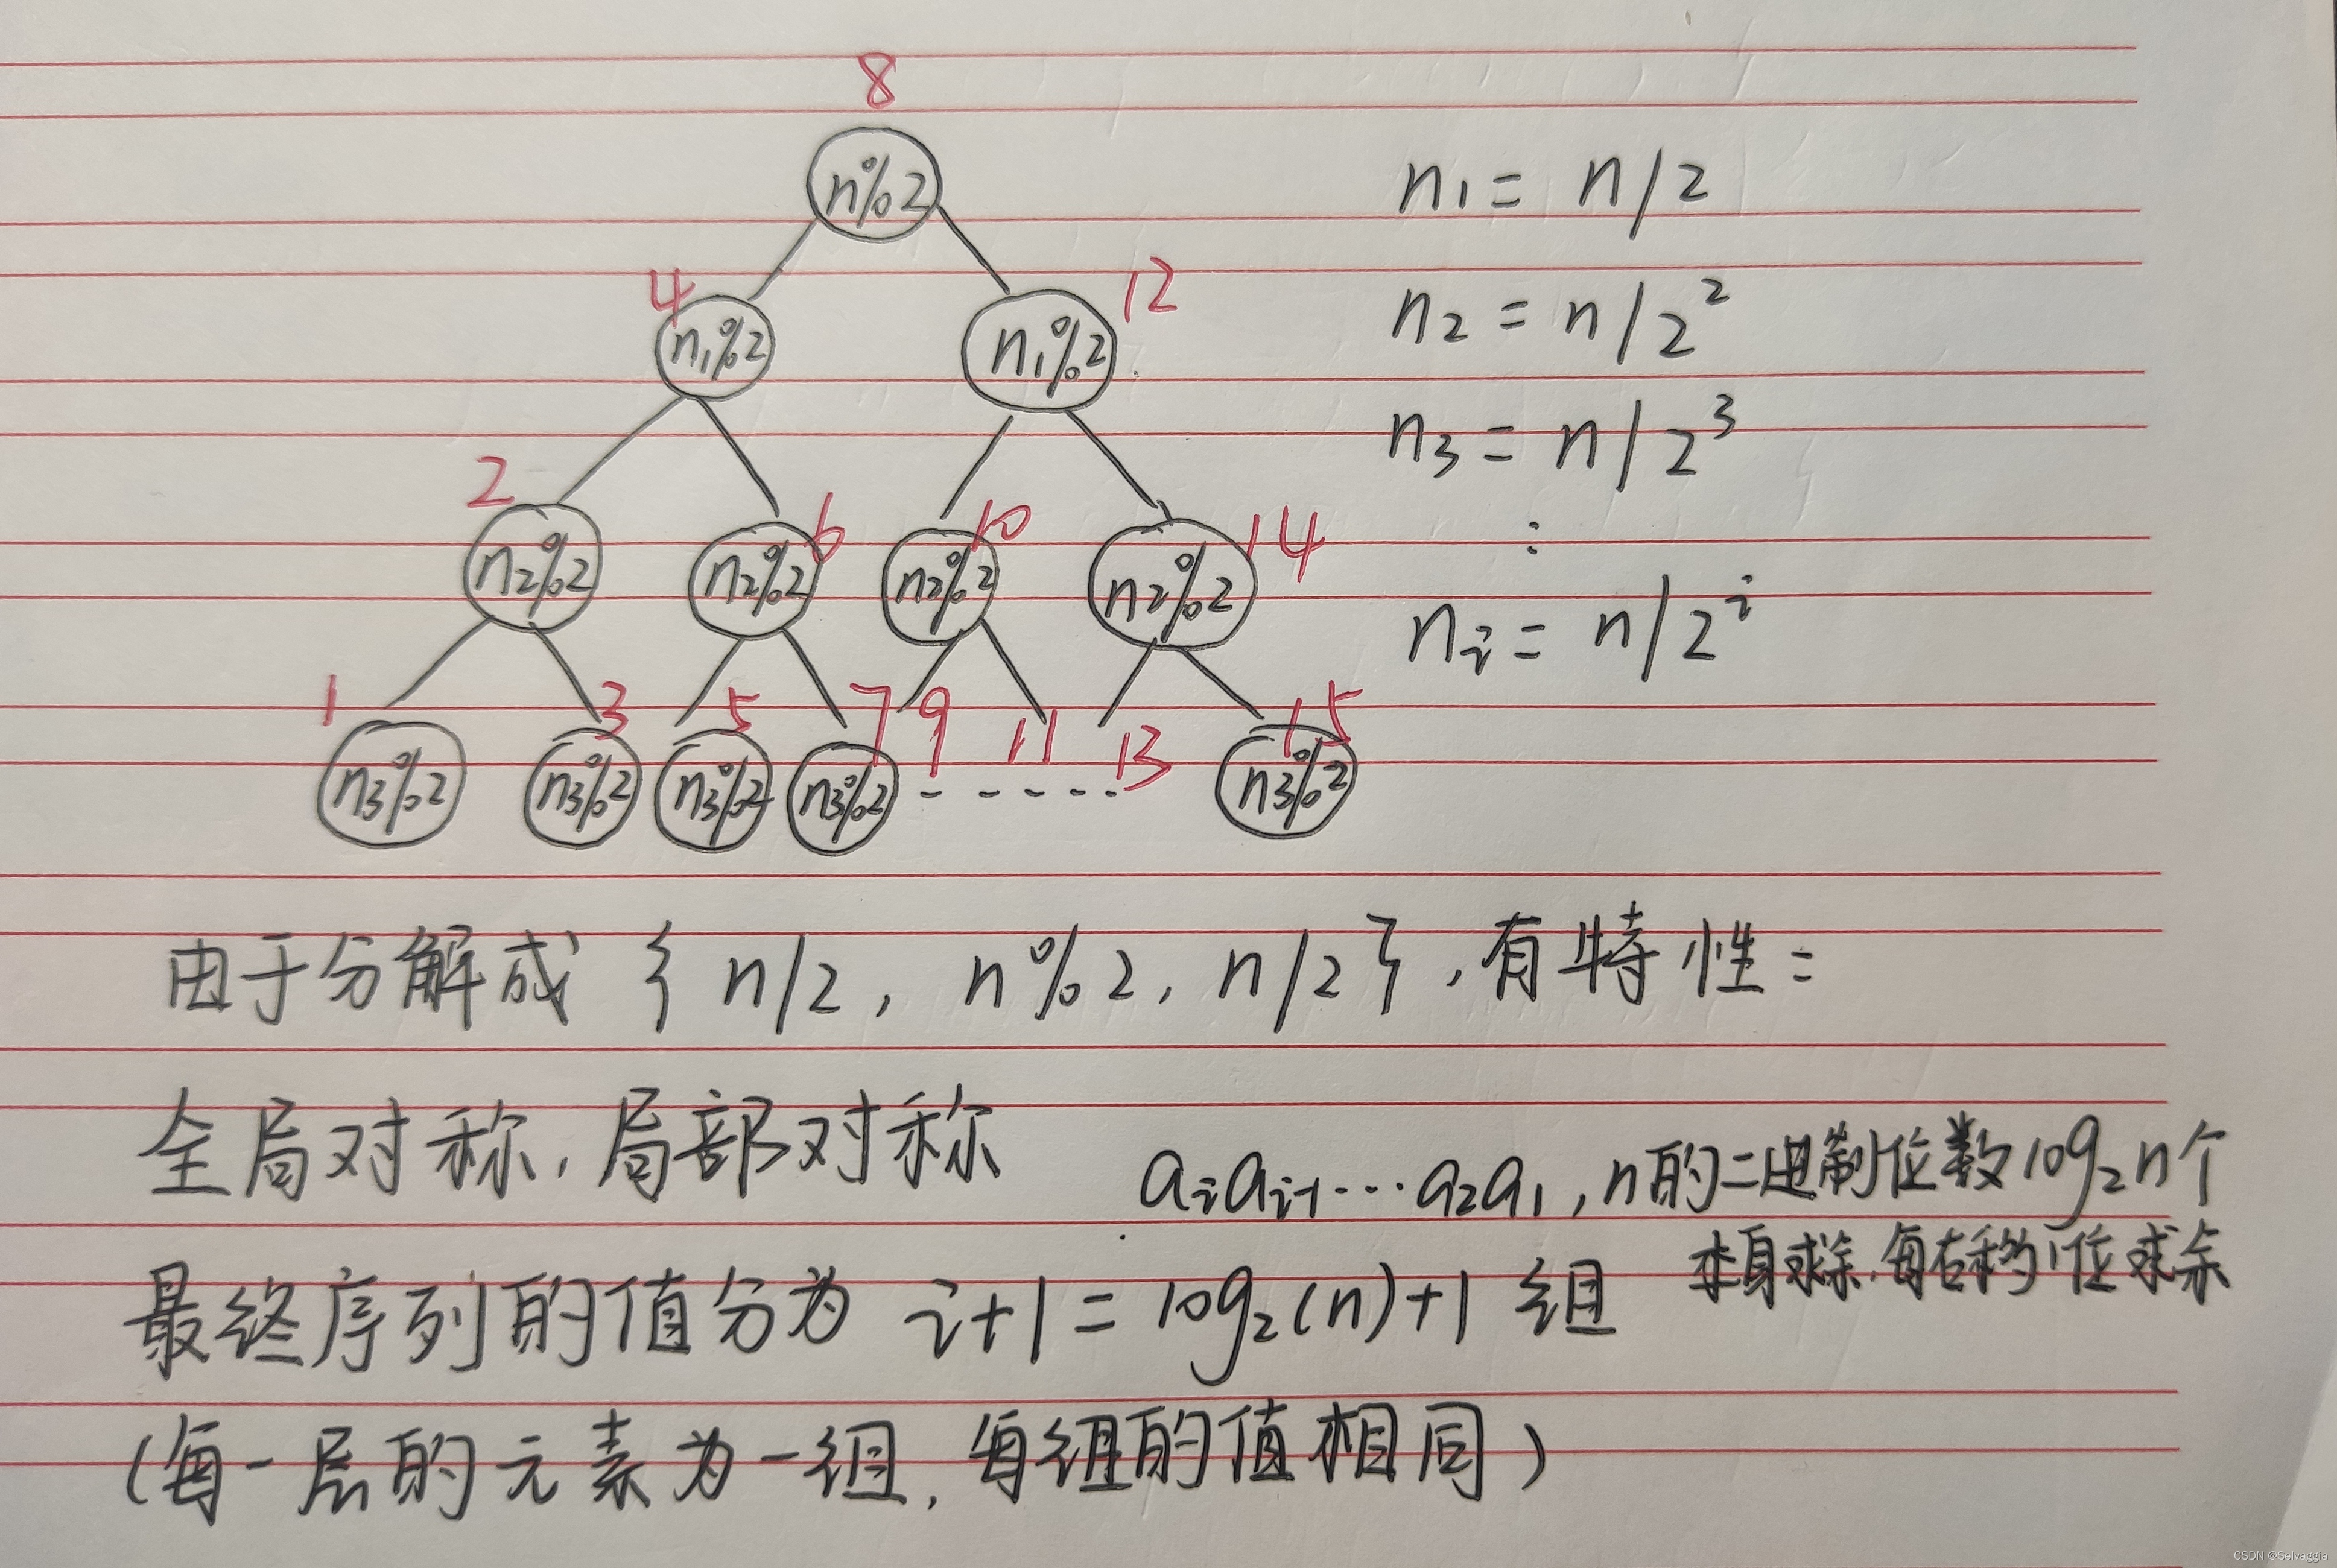 8
n%2
n₁ = n/2
4 12
n₁%2 n₁%2
n₂ = n/2²
n₃ = n/2³
2 6 10 14
n₂%2 n₂%2 n₂%2 n₂%2
⋮
nᵢ = n/2ⁱ
1 3 5 7 9 11 13 15
n₃%2 n₃%2 n₃%2 n₃%2 - - - - - n₃%2
由于分解成 { n/2, n%2, n/2 }, 有特性:
全局对称, 局部对称
aᵢaᵢ₋₁…a₂a₁, n的二进制位数log₂n个
本身求余, 每右移1位求余
最终序列的值分为 i+1 = log₂(n)+1 组
(每一层的元素为一组, 每组的值相同)
CSDN @Selvaggia